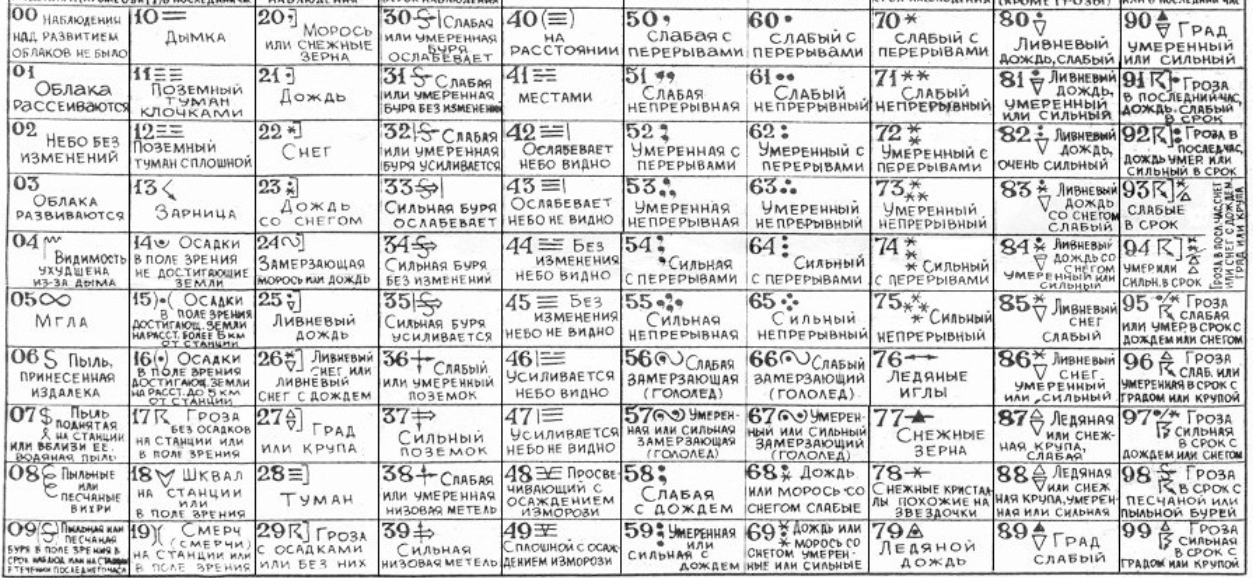 00 НАБЛЮДЕНИЯ
НАД РАЗВИТИЕМ
ОБЛАКОВ НЕ БЫЛО
10 ДЫМКА
20 МОРОСЬ
ИЛИ СНЕЖНЫЕ
ЗЕРНА
30 СЛАБАЯ
ИЛИ УМЕРЕННАЯ
БУРЯ
ОСЛАБЕВАЕТ
40 НА
РАССТОЯНИИ
50 СЛАБАЯ С
ПЕРЕРЫВАМИ
60 СЛАБЫЙ С
ПЕРЕРЫВАМИ
70 СЛАБЫЙ С
ПЕРЕРЫВАМИ
80 ЛИВНЕВЫЙ
ДОЖДЬ, СЛАБЫЙ
90 ГРАД
УМЕРЕННЫЙ
ИЛИ СИЛЬНЫЙ
01
ОБЛАКА
РАССЕИВАЮТСЯ
11
ПОЗЕМНЫЙ
ТУМАН
КЛОЧКАМИ
21
ДОЖДЬ
31 СЛАБАЯ
ИЛИ УМЕРЕННАЯ
БУРЯ БЕЗ ИЗМЕНЕНИЙ
41
МЕСТАМИ
51
СЛАБАЯ
НЕПРЕРЫВНАЯ
61
СЛАБЫЙ
НЕПРЕРЫВНЫЙ
71
СЛАБЫЙ
НЕПРЕРЫВНЫЙ
81 ЛИВНЕВЫЙ
ДОЖДЬ,
УМЕРЕННЫЙ
ИЛИ СИЛЬНЫЙ
91 ГРОЗА
В ПОСЛЕДНИЙ ЧАС,
ДОЖДЬ СЛАБЫЙ
В СРОК
02 НЕБО БЕЗ
ИЗМЕНЕНИЙ
12
ПОЗЕМНЫЙ
ТУМАН СПЛОШНОЙ
22
СНЕГ
32 СЛАБАЯ
ИЛИ УМЕРЕННАЯ
БУРЯ УСИЛИВАЕТСЯ
42
ОСЛАБЕВАЕТ
НЕБО ВИДНО
52
УМЕРЕННАЯ С
ПЕРЕРЫВАМИ
62
УМЕРЕННЫЙ С
ПЕРЕРЫВАМИ
72
УМЕРЕННЫЙ С
ПЕРЕРЫВАМИ
82 ЛИВНЕВЫЙ
ДОЖДЬ,
ОЧЕНЬ СИЛЬНЫЙ
92 ГРОЗА В
ПОСЛЕД. ЧАС,
ДОЖДЬ УМЕР. ИЛИ
СИЛЬНЫЙ В СРОК
03
ОБЛАКА
РАЗВИВАЮТСЯ
13
ЗАРНИЦА
23
ДОЖДЬ
СО СНЕГОМ
33
СИЛЬНАЯ БУРЯ
ОСЛАБЕВАЕТ
43
ОСЛАБЕВАЕТ
НЕБО НЕ ВИДНО
53
УМЕРЕННАЯ
НЕПРЕРЫВНАЯ
63
УМЕРЕННЫЙ
НЕПРЕРЫВНЫЙ
73
УМЕРЕННЫЙ
НЕПРЕРЫВНЫЙ
83 ЛИВНЕВЫЙ
ДОЖДЬ
СО СНЕГОМ
СЛАБЫЙ
93
СЛАБЫЕ
В СРОК
ГРОЗА В ПОСЛ. ЧАС, СНЕГ
ИЛИ СНЕГ С ДОЖДЕМ,
ГРАД ИЛИ КРУПА
04 ВИДИМОСТЬ
УХУДШЕНА
ИЗ-ЗА ДЫМА
14 ОСАДКИ
В ПОЛЕ ЗРЕНИЯ
НЕ ДОСТИГАЮЩИЕ
ЗЕМЛИ
24
ЗАМЕРЗАЮЩАЯ
МОРОСЬ ИЛИ ДОЖДЬ
34
СИЛЬНАЯ БУРЯ
БЕЗ ИЗМЕНЕНИЙ
44 БЕЗ
ИЗМЕНЕНИЯ
НЕБО ВИДНО
54
СИЛЬНАЯ
С ПЕРЕРЫВАМИ
64
СИЛЬНЫЙ
С ПЕРЕРЫВАМИ
74
СИЛЬНЫЙ
С ПЕРЕРЫВАМИ
84 ЛИВНЕВЫЙ
ДОЖДЬ СО
СНЕГОМ
УМЕРЕННЫЙ ИЛИ
СИЛЬНЫЙ
94
УМЕР ИЛИ
СИЛЬН. В СРОК
05
МГЛА
15 ОСАДКИ
В ПОЛЕ ЗРЕНИЯ
ДОСТИГАЮЩ. ЗЕМЛИ
НА РАССТ. БОЛЕЕ 5 КМ
ОТ СТАНЦИИ
25
ЛИВНЕВЫЙ
ДОЖДЬ
35
СИЛЬНАЯ БУРЯ
УСИЛИВАЕТСЯ
45 БЕЗ
ИЗМЕНЕНИЯ
НЕБО НЕ ВИДНО
55
СИЛЬНАЯ
НЕПРЕРЫВНАЯ
65
СИЛЬНЫЙ
НЕПРЕРЫВНЫЙ
75
СИЛЬНЫЙ
НЕПРЕРЫВНЫЙ
85 ЛИВНЕВЫЙ
СНЕГ
СЛАБЫЙ
95 ГРОЗА
СЛАБАЯ
ИЛИ УМЕР В СРОК С
ДОЖДЕМ ИЛИ СНЕГОМ
06 ПЫЛЬ,
ПРИНЕСЕННАЯ
ИЗДАЛЕКА
16 ОСАДКИ
В ПОЛЕ ЗРЕНИЯ
ДОСТИГАЮЩ. ЗЕМЛИ
НА РАССТ. ДО 5 КМ
ОТ СТАНЦИИ
26 ЛИВНЕВЫЙ
СНЕГ ИЛИ
ЛИВНЕВЫЙ
СНЕГ С ДОЖДЕМ
36 СЛАБЫЙ
ИЛИ УМЕРЕННЫЙ
ПОЗЕМОК
46
УСИЛИВАЕТСЯ
НЕБО ВИДНО
56 СЛАБАЯ
ЗАМЕРЗАЮЩАЯ
(ГОЛОЛЕД)
66 СЛАБЫЙ
ЗАМЕРЗАЮЩИЙ
(ГОЛОЛЕД)
76
ЛЕДЯНЫЕ
ИГЛЫ
86 ЛИВНЕВЫЙ
СНЕГ.
УМЕРЕННЫЙ
ИЛИ СИЛЬНЫЙ
96 ГРОЗА
СЛАБ. ИЛИ
УМЕРЕННАЯ В СРОК С
ГРАДОМ ИЛИ КРУПОЙ
07 ПЫЛЬ
ПОДНЯТАЯ
НА СТАНЦИИ
ИЛИ ВБЛИЗИ ЕЕ.
ВОДЯНАЯ ПЫЛЬ
17 ГРОЗА
БЕЗ ОСАДКОВ
НА СТАНЦИИ ИЛИ
В ПОЛЕ ЗРЕНИЯ
27 ГРАД
ИЛИ КРУПА
37
СИЛЬНЫЙ
ПОЗЕМОК
47
УСИЛИВАЕТСЯ
НЕБО НЕ ВИДНО
57 УМЕРЕН-
НАЯ ИЛИ СИЛЬНАЯ
ЗАМЕРЗАЮЩАЯ
(ГОЛОЛЕД)
67 УМЕРЕН-
НЫЙ ИЛИ СИЛЬНЫЙ
ЗАМЕРЗАЮЩИЙ
(ГОЛОЛЕД)
77
СНЕЖНЫЕ
ЗЕРНА
87 ЛЕДЯНАЯ
ИЛИ СНЕЖ-
НАЯ КРУПА,
СЛАБАЯ
97 ГРОЗА
СИЛЬНАЯ
В СРОК С
ДОЖДЕМ ИЛИ СНЕГОМ
08 ПЫЛЬНЫЕ
ИЛИ
ПЕСЧАНЫЕ
ВИХРИ
18 ШКВАЛ
НА СТАНЦИИ
ИЛИ
В ПОЛЕ ЗРЕНИЯ
28
ТУМАН
38 СЛАБАЯ
ИЛИ УМЕРЕННАЯ
НИЗОВАЯ МЕТЕЛЬ
48 ПРОСВЕ-
ЧИВАЮЩИЙ С
ОСАЖДЕНИЕМ
ИЗМОРОЗИ
58
СЛАБАЯ
С ДОЖДЕМ
68 ДОЖДЬ
ИЛИ МОРОСЬ СО
СНЕГОМ СЛАБЫЕ
78
СНЕЖНЫЕ КРИСТАЛ-
ЛЫ ПОХОЖИЕ НА
ЗВЕЗДОЧКИ
88 ЛЕДЯНАЯ
ИЛИ СНЕЖ
НАЯ КРУПА, УМЕРЕН-
НАЯ ИЛИ СИЛЬНАЯ
98 ГРОЗА
В СРОК С
ПЕСЧАНОЙ ИЛИ
ПЫЛЬНОЙ БУРЕЙ
09 ПЫЛЬНАЯ ИЛИ
ПЕСЧАНАЯ
БУРЯ В ПОЛЕ ЗРЕНИЯ В
СРОК НАБЛЮД. ИЛИ НА СТАНЦИИ
В ТЕЧЕНИИ ПОСЛЕДНЕГО ЧАСА
19 СМЕРЧ
(СМЕРЧИ)
НА СТАНЦИИ ИЛИ
В ПОЛЕ ЗРЕНИЯ
29 ГРОЗА
С ОСАДКАМИ
ИЛИ БЕЗ НИХ
39
СИЛЬНАЯ
НИЗОВАЯ МЕТЕЛЬ
49
СПЛОШНОЙ С ОСАЖ-
ДЕНИЕМ ИЗМОРОЗИ
59 УМЕРЕННАЯ
ИЛИ
СИЛЬНАЯ С
ДОЖДЕМ
69 ДОЖДЬ ИЛИ
МОРОСЬ СО
СНЕГОМ УМЕРЕН-
НЫЕ ИЛИ СИЛЬНЫЕ
79
ЛЕДЯНОЙ
ДОЖДЬ
89 ГРАД
СЛАБЫЙ
99 ГРОЗА
СИЛЬНАЯ
В СРОК С
ГРАДОМ ИЛИ КРУПОЙ